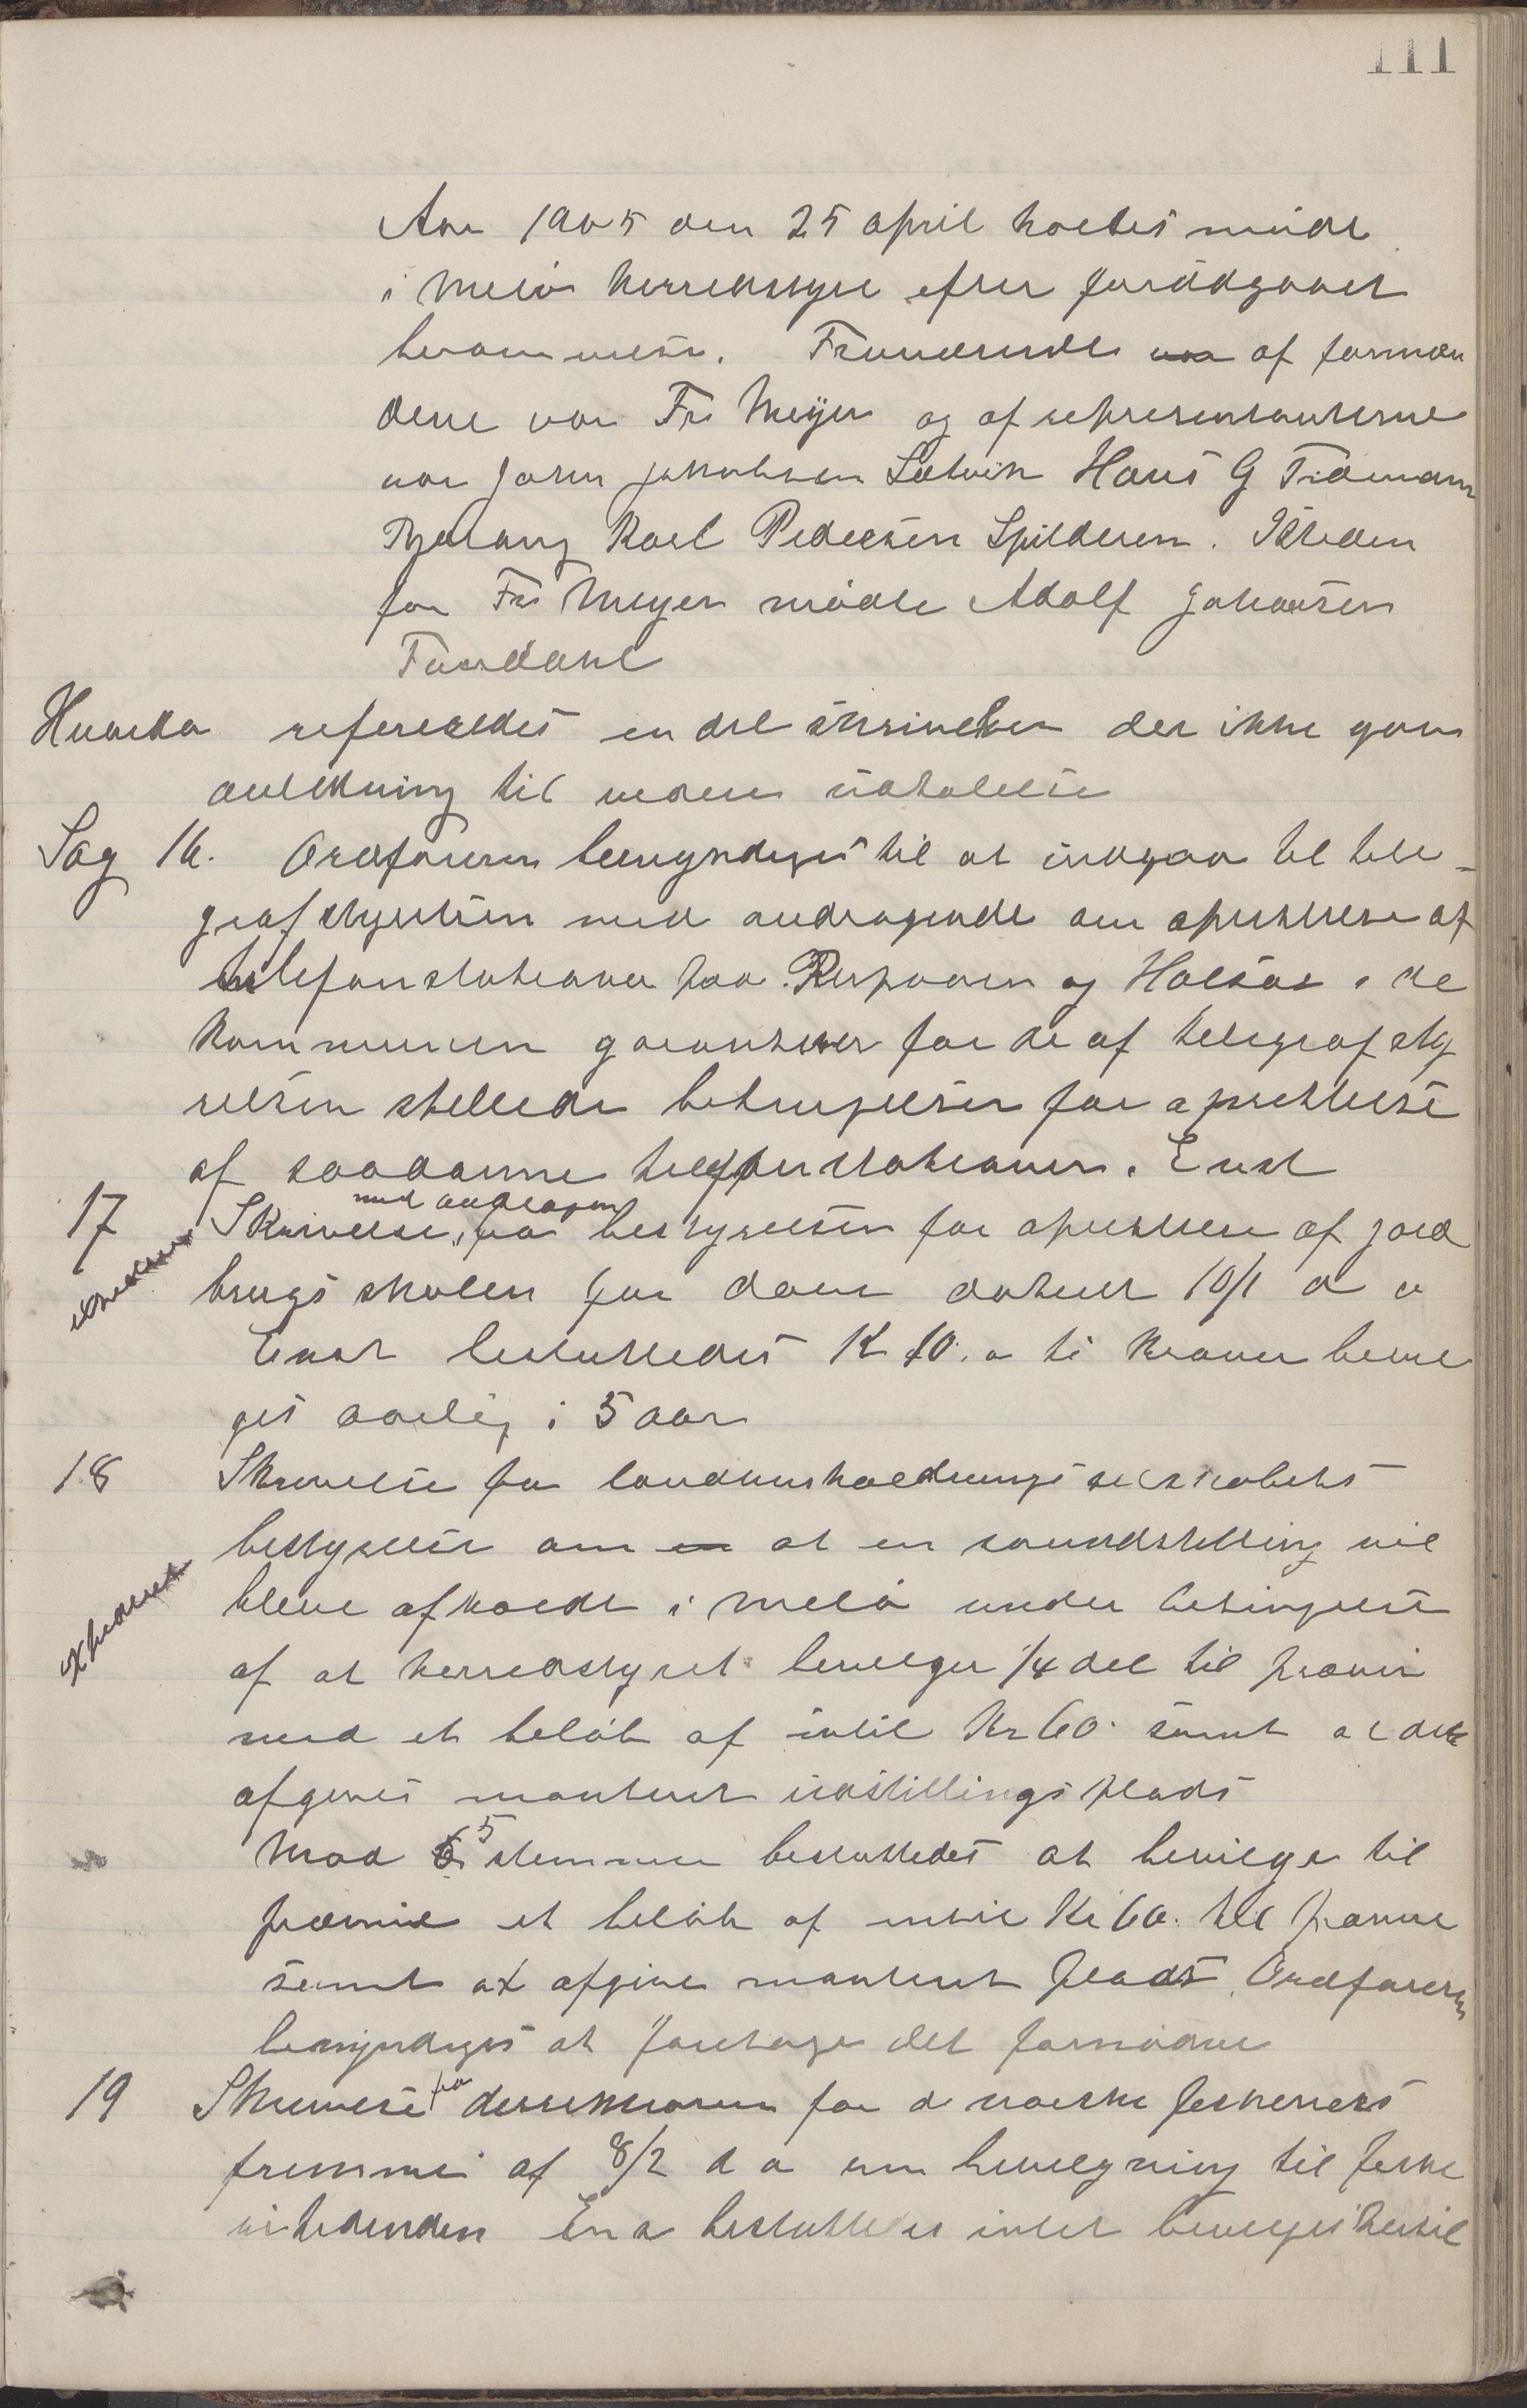 111
Aar 1905 den 25 april holtes møde
i Meløi herredstyre efter forudgaaet
berammelse. Fraværende var af formæn
dene var Fr Meyer og af representanterne
var Johan Jakobsen Sætvik Hans G Tidemann
Bjærang Karl Pedersen Spilderen. Isteden
for Fr Meyer mødte Adolf Johansen
Faasdahl
Hvorda refereredes en del skrivelser der ikke gav
anledning til vedere udtalelse
Sag 16. Ordføreren bemyndiges til at indgaa til tele-
grafstyrelsen med andragende om oprettelse af
telefonstationer paa Reipaaen og Halsa i de
kommunen garanterer for de af telegrafsty
relsen stillede betingelser for oprettelse
af saadanne telefonstationer. Enst
17 Skrivelse, med andragen fra bestyrelsen for oprettelse af jord
brugsskolen for dam dateret 10/1 d a
Enst besluttedes K 10.- ti kroner bevil
ges aarlig i 5 aar
18 Skrivelse fra landhusholdningsselskabets
bestyrelse om en at en saundstilling vil
bleve afholdt i Meløi under betingelse
af at herredstyret bevilger 1/4 del til præmi
med et beløb af intil Kr 60. samt at det
afgives monteret udstillingsplads
Mod 6 5 stemmer besluttedes at bevilge til
præmie et beløb af intil Kr 60. til præmie
samt at afgive monteret plads. Ordføreren
bemyndiges at foretage det fornødne
19 Skrivelse fra derrektionen for d norske feskeriers
fremme af 8/2 d a om bevilgning til feske
Ens besluttedes intet beveges hertil